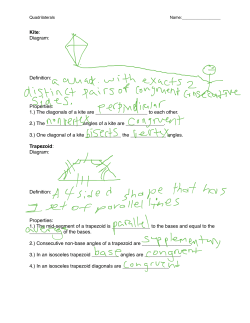 Quadrilaterals Name:
Kite:
Diagram:
Definition: a quad. with exacts 2
distinct pairs of congruent consecutive
sides.
Properties:
1.) The diagonals of a kite are perpendicular to each other.
2.) The nonvertex angles of a kite are congruent
3.) One diagonal of a kite bisects the vertex angles.
Trapezoid:
Diagram:
Definition: A 4 sided shape that has
1 set of parallel lines
Properties:
1.) The mid-segment of a trapezoid is parallel to the bases and equal to the
average of the bases.
2.) Consecutive non-base angles of a trapezoid are supplementary
3.) In an isosceles trapezoid base angles are congruent
4.) In an isosceles trapezoid diagonals are congruent